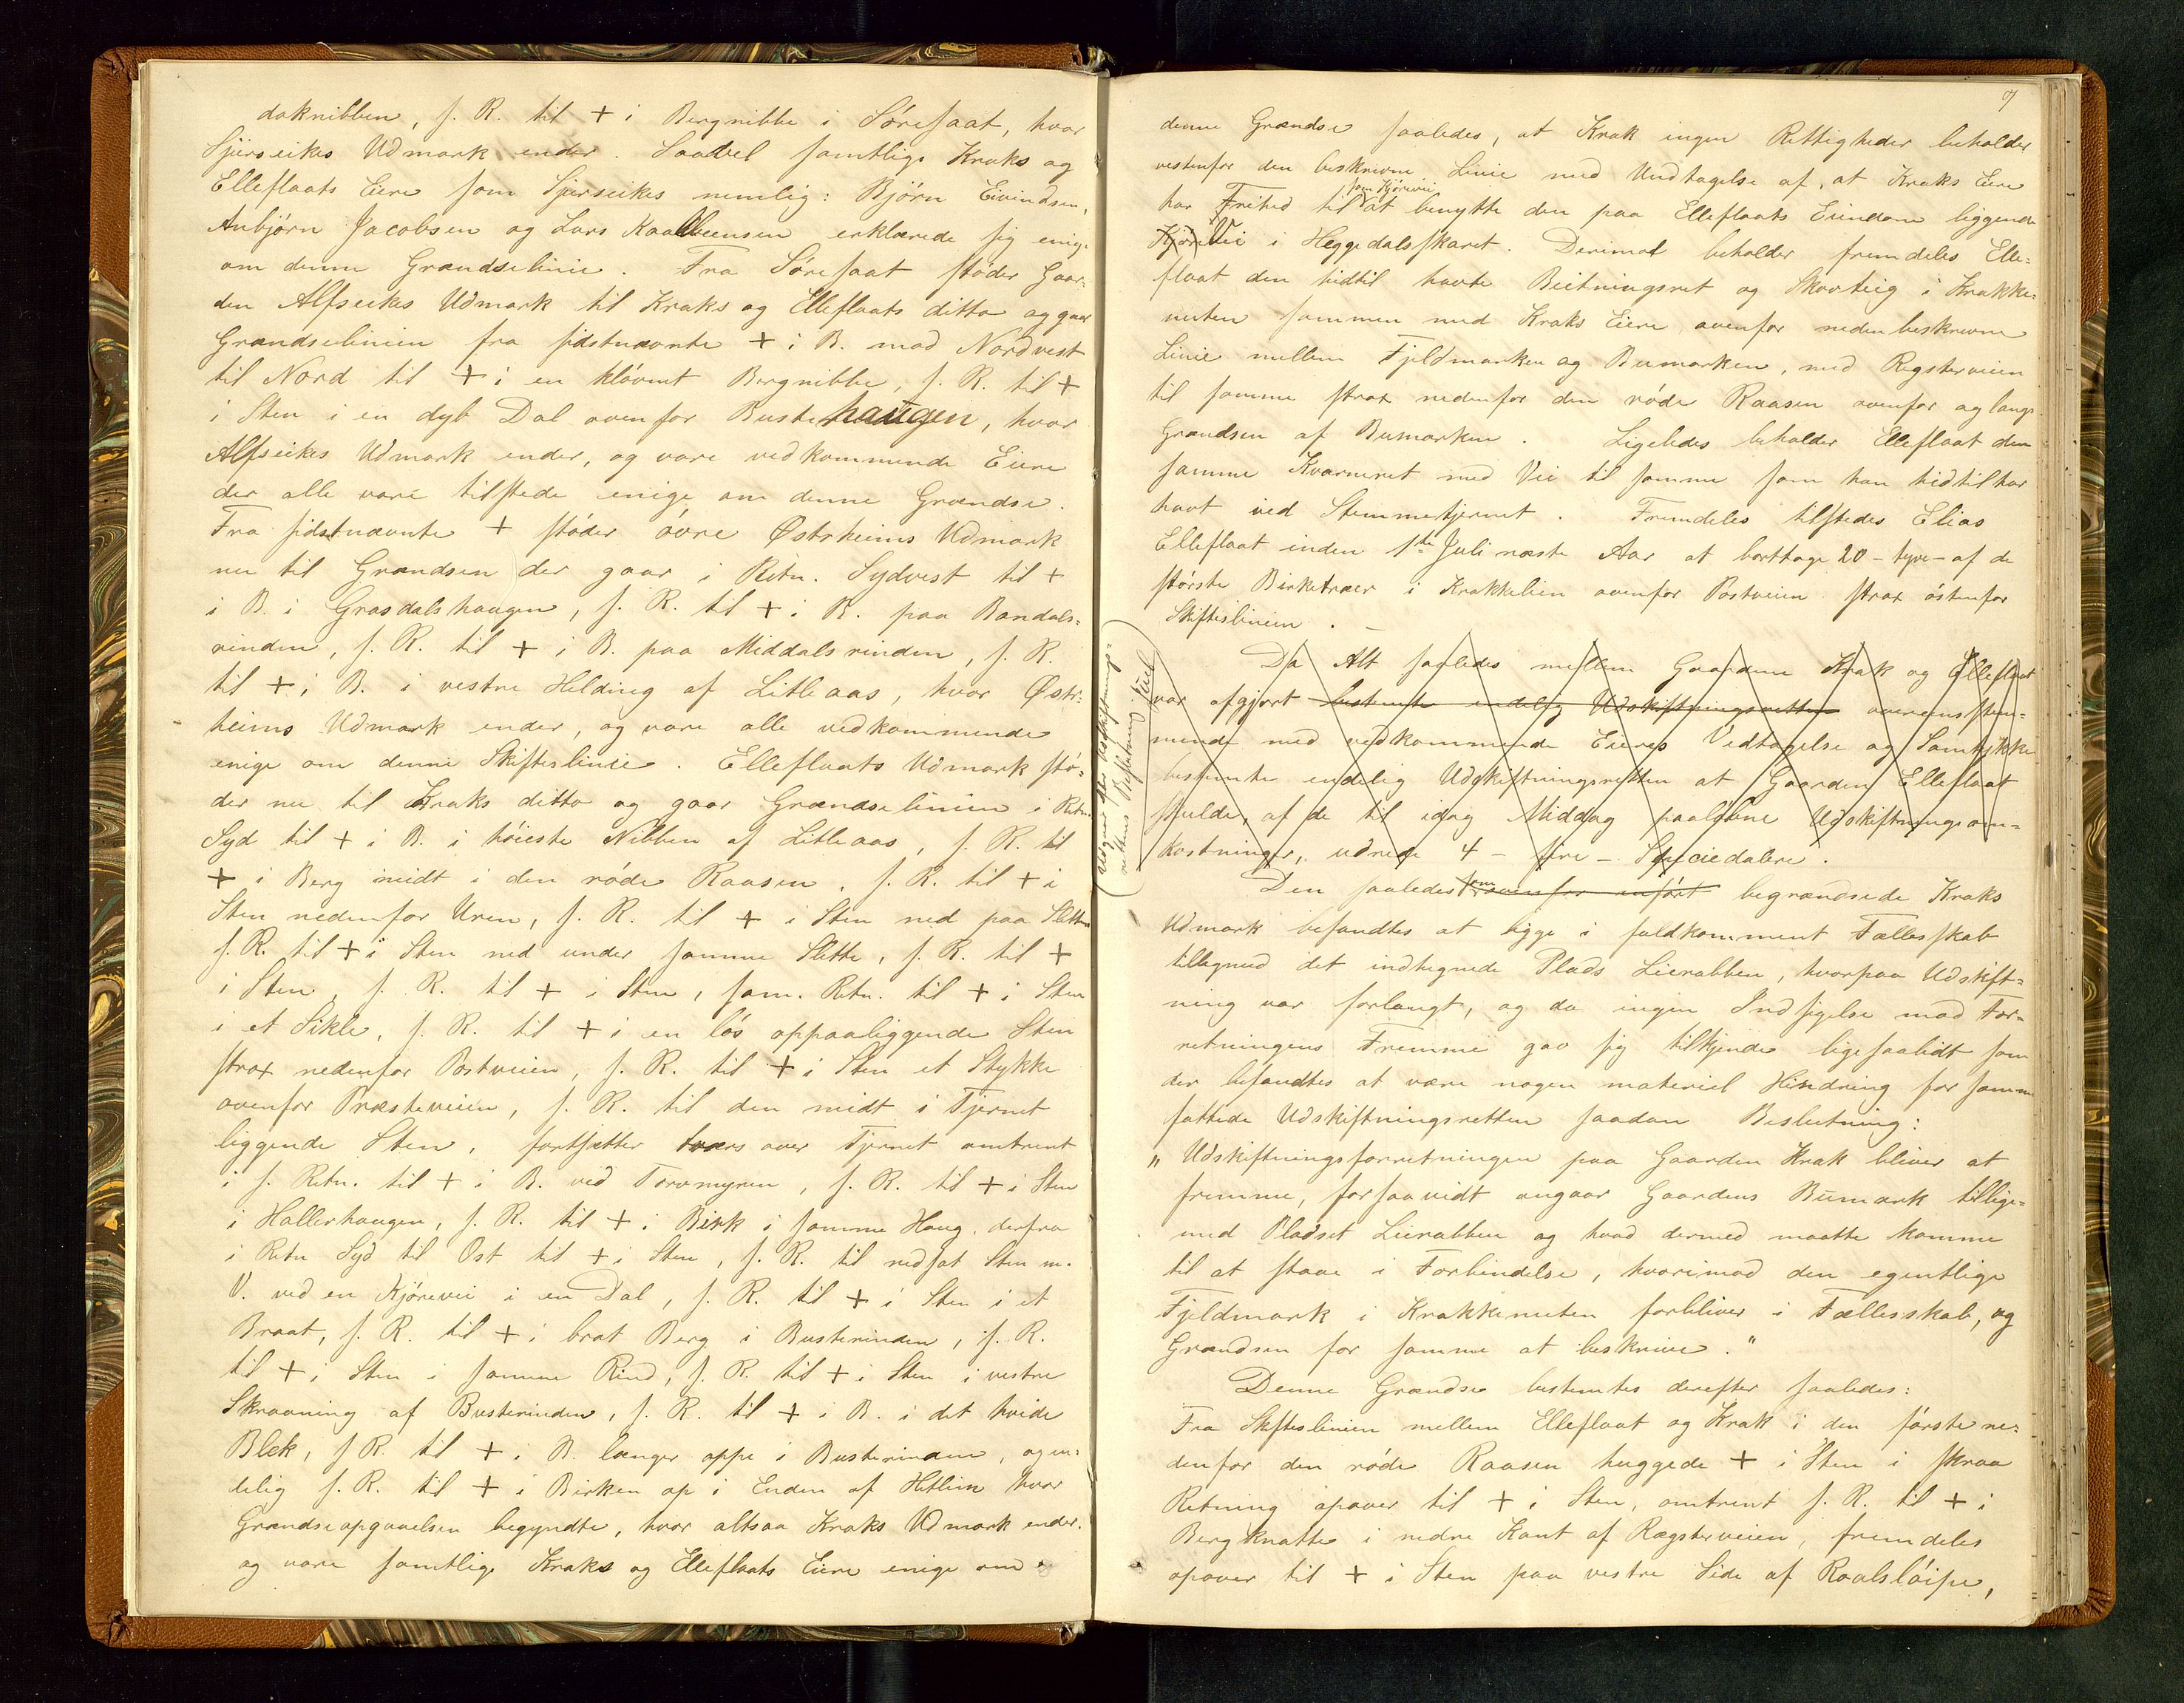 daknibben, s. R. til + i Bergnibbe i Sörefaat, hvor
Sjurseikes Udmark ender. Saavel samtlige Kraks og
Elleflaats Eiere som Sjurseikes nemlig: Björn Eivindsen,
Anbjörn Jacobsen og Lars Kaalbeensen erklærede sig enige
om denne Grændselinie. Fra Sörefaat stöder Gaar-
den Alfseikes Udmark til Kraks og Elleflaats ditto og gaar
Grændselinien fra sidstnævnte + i B. mod Nordvest
til Nord til + i en klövent Bergnibbe, s. R. til +
i Sten i en dyb Dal ovenfor Bustehaugen, hvor
Alfseikes Udmark ender, og vare vedkommende Eiere
der alle vare tilstede enige om denne Grændse.
Fra sidstnævnte + stöder övre Østrheims Udmark
nu til Grændsen der gaar i Retn. Sydvest til +
i B. i Grasdalshaugen, s. R. til + i B. paa Bandals-
rinden, s. R. til + i B. paa Middalsrinden, s. R.
til + i B. i vestre Helding af Litleaas, hvor Østr-
heims Udmark ender, og vare alle vedkommende
enige om denne Skifteslinie. Elleflaats Udmark stö-
der nu til Kraks ditto og gaar Grændselinien i Retn.
Syd til + i B. i höieste Nibben af Litleaas, s. R. til
+ i Berg midt i den röde Raasen, s. R. til + i
Sten nedenfor Uren, s. R. til + i Sten ned paa Sletten
s. R. til + i Sten ned under samme Slette, s. R. til +
i Sten, s. R. til + i Sten, sam. Retn. til + i Sten
i et Sikle, s. R. til + i en lös oppaaliggende Sten
strax nedenfor Postveien, s. R. til + i Sten et Stykke
ovenfor Præsteveien, s. R. til den midt i Tjernet
liggende Sten, fortsætter tværs over Tjernet omtrent
i s. Retn. til + i B. ved Torvmyren, s. R. til + i Sten
i Hallerhaugen, s. R. til + i Birk i samme Haug, derfra
i Retn Syd til Ost til + i Sten, s. R. til nedsat Sten m.
V. ved en Kjörevei i en Dal, s. R. til + i Sten i et
Braat, s. R. til + i brat Berg i Busterinden, s. R.
til + i Sten i samme Rind, s. R. til + i Sten i vestre
Skraaning af Busterinden, s. R. til + i B. i det hvide
Blek, s R. til + i B. længer oppe i Busterinden, og en-
delig s. R. til + i Birken op i Enden af Hetlien hvor
Grændseopgavelsen begyndte, hvor altsaa Kraks Udmark ender.
og vare samtlige Kraks og Elleflaats Eiere enige om
7
denne Grændse saaledes, at Krak ingen Rettigheder beholder
vestenfor den beskrevne Linie med Undtagelse af, at Kraks Eiere
som Kjörevei
har Frihed til at benytte den paa Elleflaats Eiendom liggende
Kjöre Vei i Heggedalsskaret. Derimod beholder fremdeles Elle-
flaat den hidtil havte Beitningsret og Skovteig i Krakke-
nuten sammen med Kraks Eiere ovenfor nedenbeskrevne
Linie mellem Fjeldmarken og Bumarken, med Regsterveien
til samme strax nedenfor den röde Raasen ovenfor og langs
Grændsen af Bumarken. Ligeledes beholder Elleflaat den
samme Kværneret med Vei til samme som han hidtil har
havt ved Stemmetjernet. Fremdeles tilstedes Elias
Elleflaat inden 1ste Juli næste Aar at borttage 20 - tyve - af de
störste Birketræer i Krakkelien ovenfor Postveien strax östenfor
Skifteslinien. -
Da Alt saaledes mellem Gaardene Krak og Elleflaat
var afgjort bestemte endelig Udskiftningsretten overensstem-
mende med vedkommende Eieres Vedtagelse og Samtykke
bestemte endelig Udskiftningsretten at Gaarden Elleflaat
skulde, af de til idag Middag paalöbne Udskiftningsom-
kostninger, udrede 4 - fire - Speciedalere.
(Udgaar efter Udskiftnings-
rettens Beslutning. Juel)
Den saaledes som ovenfor anfört begrændsede Kraks
Udmark befandtes at ligge i fuldkomment Fællesskab
tilligemed det indhegnede Plads Lierabben, hvorpaa Udskift-
ning var forlangt, og da ingen Indsigelse mod For-
retningens Fremme gav sig tilkjende ligesaalidt som
der befandtes at være nogen materiel Hindring for samme
fattede Udskiftningsretten saadan Beslutning:
"Udskiftningsforretningen paa Gaarden Krak bliver at
fremme, forsaavidt angaar Gaardens Bumark tillige-
med Pladset Lierabben og hvad dermed maatte komme
til at staae i Forbindelse, hvorimod den egentlige
Fjeldmark i Krakkenuten forbliver i Fællesskab, og
Grændsen for samme at beskrive."
Denne Grændse bestemtes derefter saaledes:
Fra Skifteslinien mellem Elleflaat og Krak i den förste ne-
denfor den röde Raasen huggede + i Sten i skraa
Retning opover til + i Sten, omtrent s. R. til + i
Bergknatte i nedre Kant af Regsterveien, fremdeles
opover til + i Sten paa vestre Side af Raalslöipe,